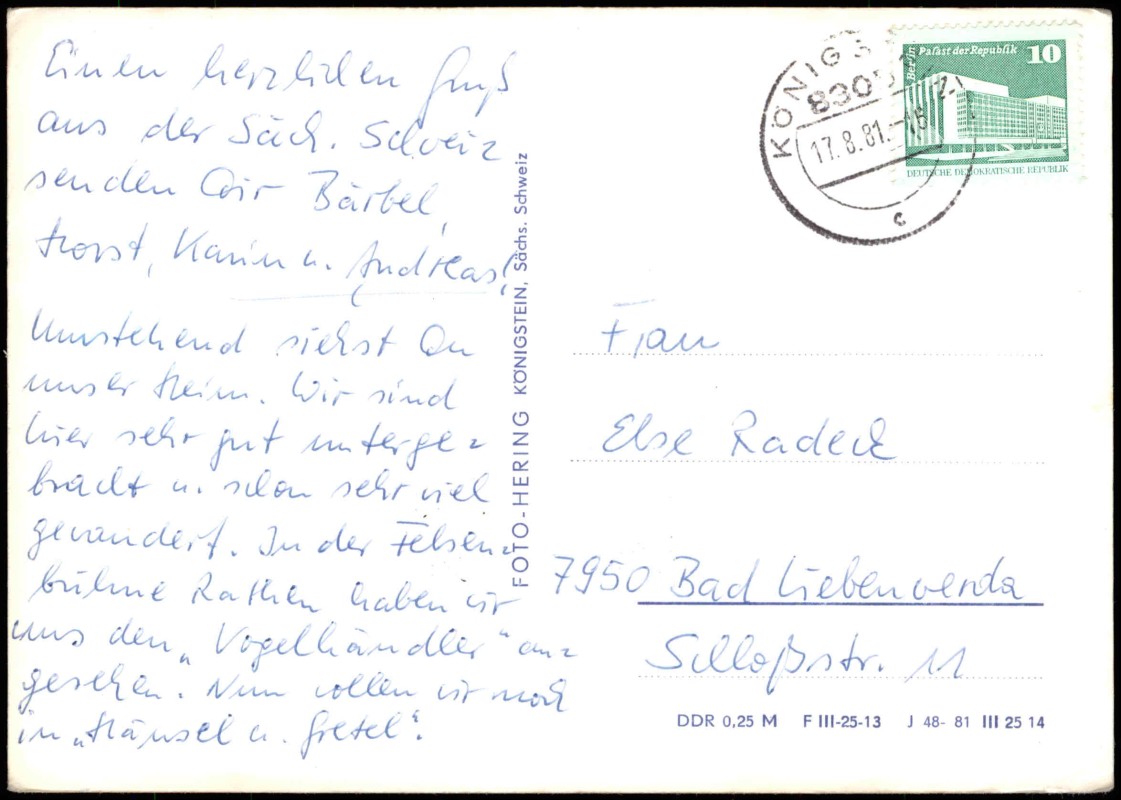 Einen herzlichen Gruß
aus der Säch. Schweiz
senden Dir Bärbel,
Horst, Karin u. Andreas!
Umstehend siehst Du
unser Heim. Wir sind
hier sehr gut unterge=
bracht u. schon sehr viel
gewandert. In der Felsen=
bühne Rathen haben wir
uns den „Vogelhändler" an=
gesehen. Nun wollen wir noch
in „Hänsel u. Gretel".
FOTO-HERING KÖNIGSTEIN, Sächs. Schweiz
KÖNIGS
8305
17.8.81.-18
c
Berlin Palast der Republik 10
DEUTSCHE DEMOKRATISCHE REPUBLIK
Frau
Else Radeck
7950 Bad Liebenwerda
Schloßstr. 11
DDR 0,25 M F III-25-13 J 48- 81 III 25 14